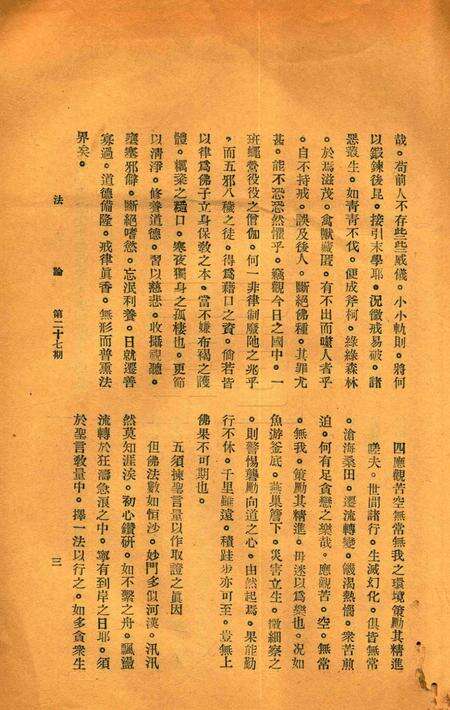 哉。苟前人不存些些威儀。小小軌則。將何
以鍛鍊後昆。接引末學耶。況微戒易破。諸
惡叢生。如青青不伐。便成斧柯。綠綠森林
。於焉滋茂。禽獸藏匿。有不出而嚙人者乎
。自不持戒。誤及後人。斷絕佛種。其罪尤
甚。能不恐恐然懼乎。竊觀今日之國中。一
班蠅營役役之僧伽。何一非律制廢弛之兆乎
。而五邪八穢之徒。得爲藉口之資。倘若皆
以律爲佛子立身保教之本。當不嫌布褐之護
體。糲粱之糊口。寒夜獨身之孤棲也。更節
以清淨。修養道德。習以慈悲。收攝視聽。
壅塞邪僻。斷絕嗜慾。忘泯利養。日就遷善
寡過。道德備隆。戒律眞香。無形而普熏法
界矣。
四應觀苦空無常無我之環境策勵其精進
嗟夫。世間諸行。生滅幻化。俱皆無常
。滄海桑田。遷流轉變。饑渴熱惱。衆苦煎
迫。何有足貪戀之樂哉。應觀苦。空。無常
。無我。策勵其精進。毋迷以爲樂也。况如
魚游釜底。燕巢簷下。災害立生。微細察之
。則警惕礱勵向道之心。由然起焉。果能勤
行不休。千里雖遠。積跬步亦可至。豈無上
佛果不可期也。
五須揀聖言量以作取證之眞因
但佛法數如恒沙。妙門多似河漢。汛汛
然莫知涯涘。初心鑽研。如不繫之舟。飄盪
流轉於狂濤急浪之中。寧有到岸之日耶。須
於聖言敎量中。擇一法以行之。如多貪衆生
法 論 第二十七期
三